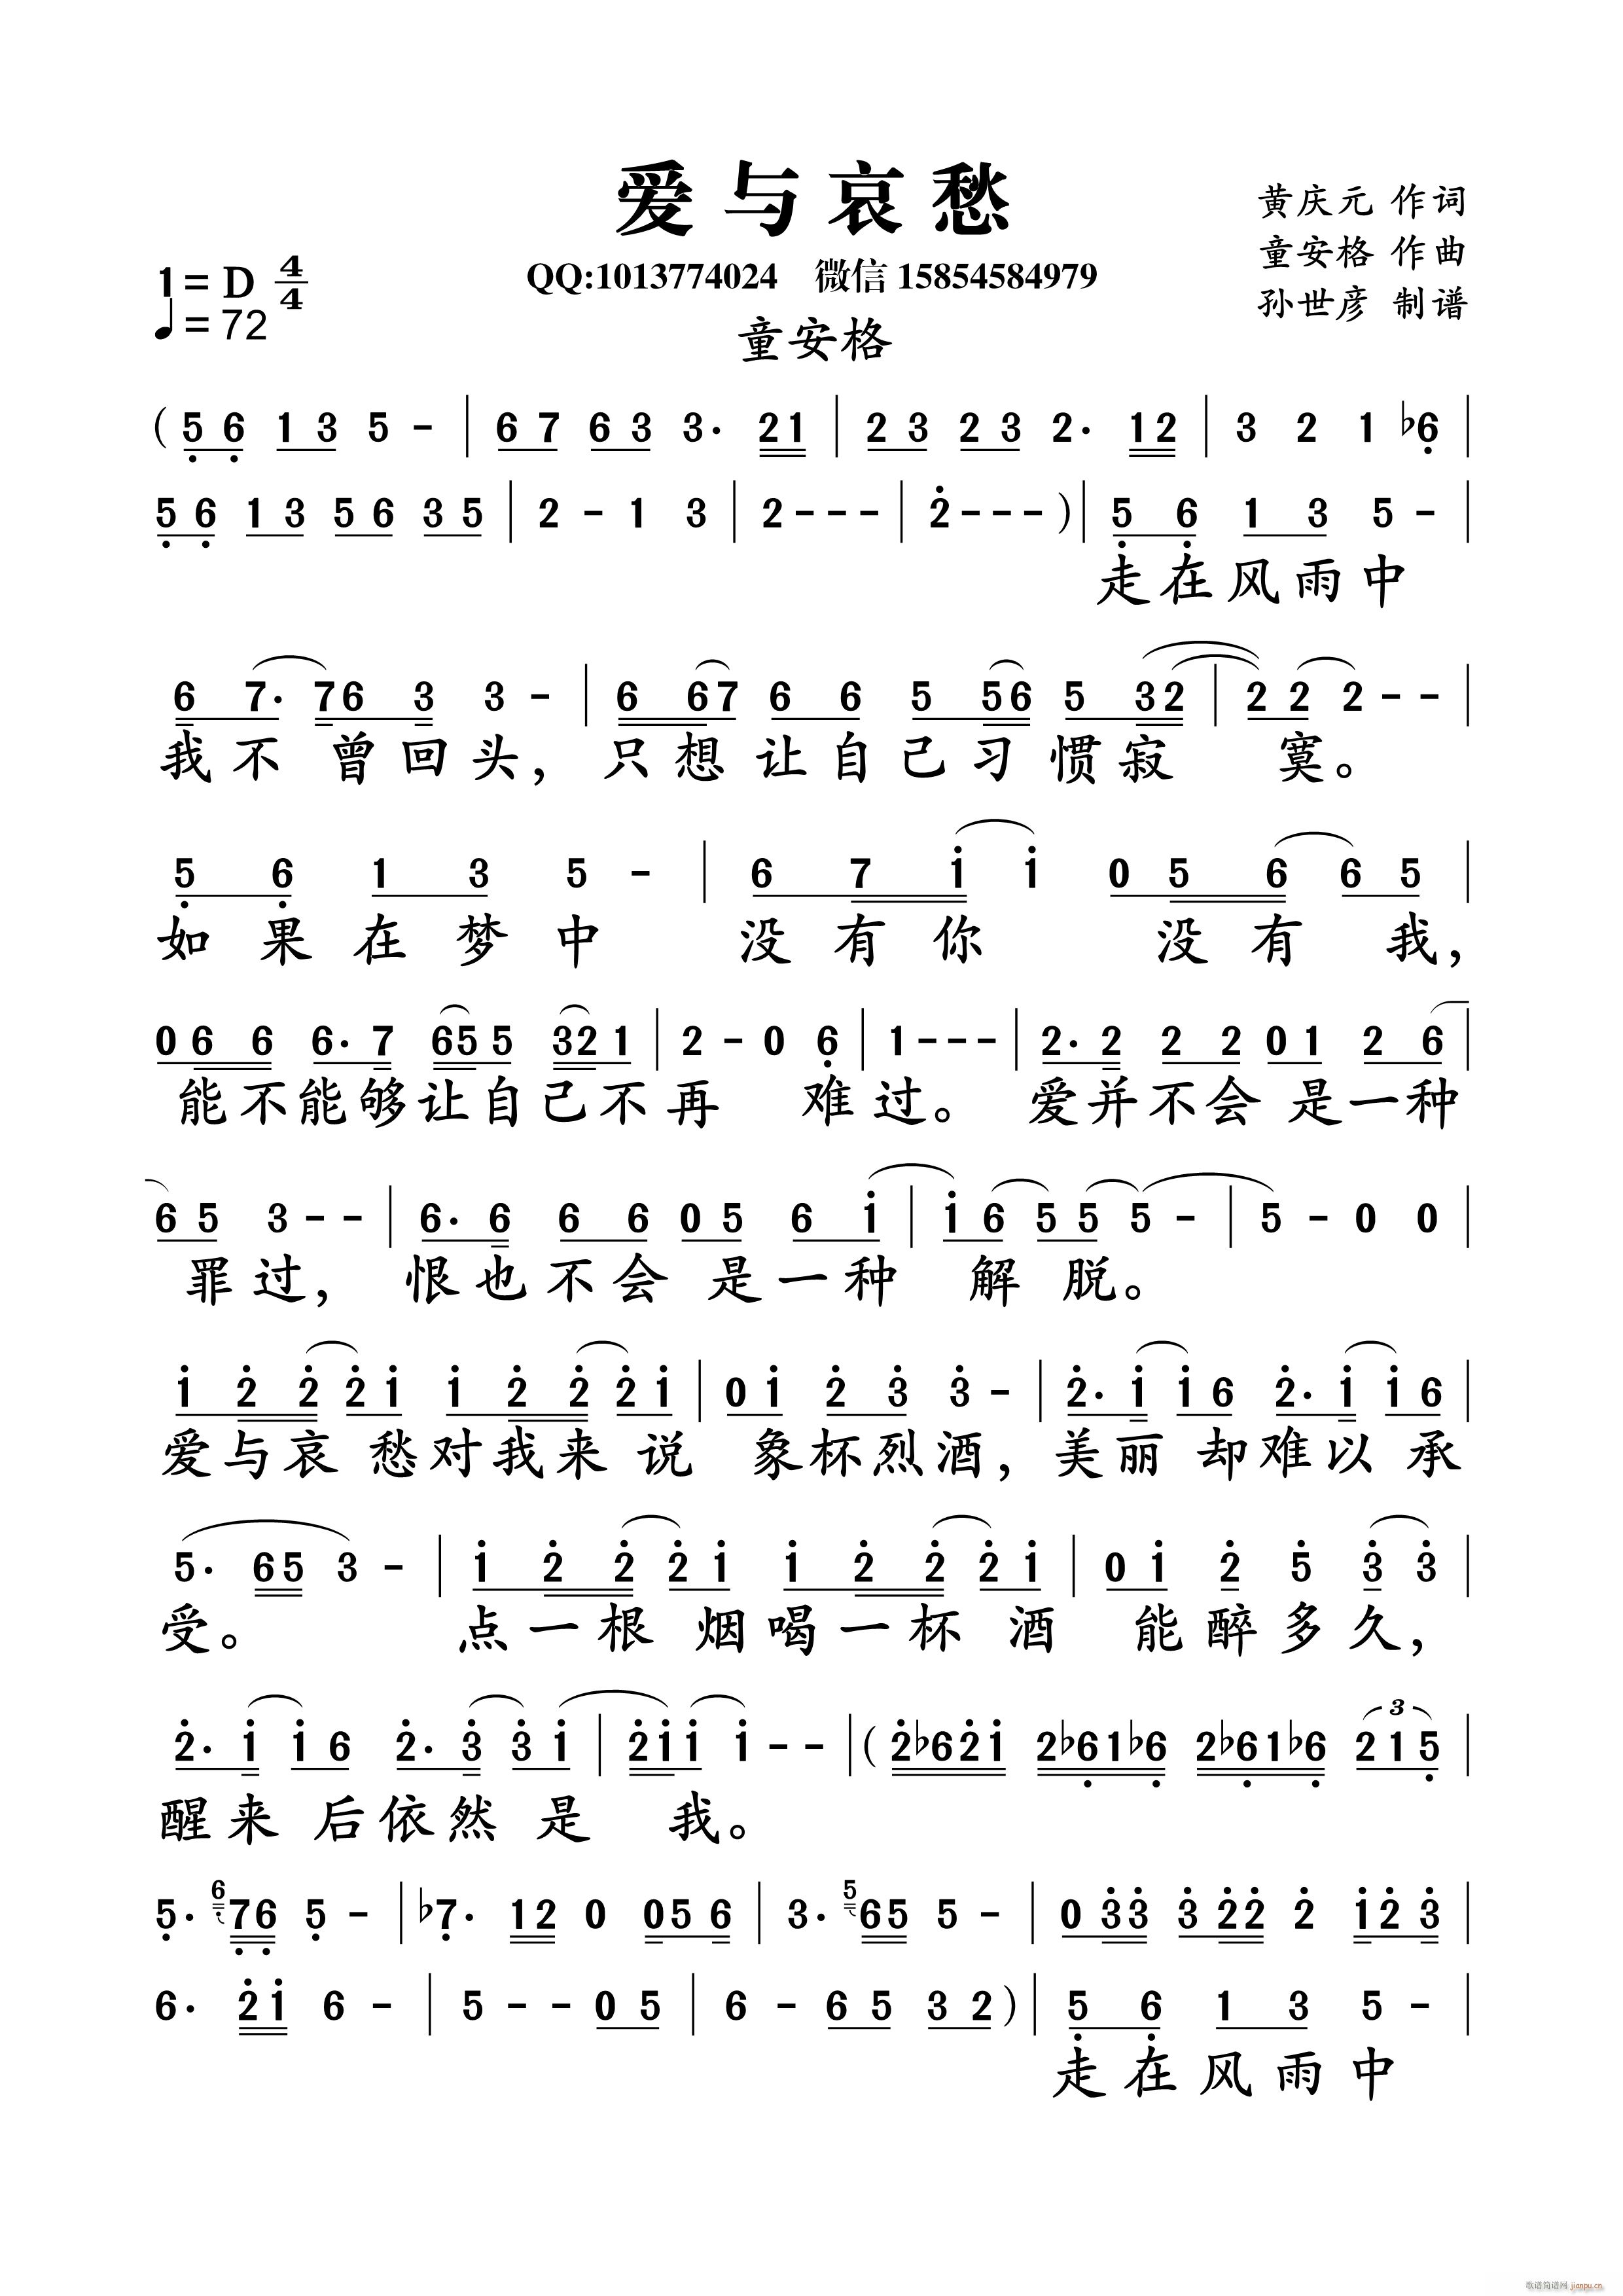 爱与哀愁
黄庆元 作词
童安格 作曲
孙世彦 制谱
1= D 4/4
♩= 72
QQ:1013774024 微信 15854584979
童安格
( 5 6 1 3 5 - | 6 7 6 3 3. 2 1 | 2 3 2 3 2. 1 2 | 3 2 1 ♭6 |
5 6 1 3 5 6 3 5 | 2 - 1 3 | 2 - - - | 2 - - - ) | 5 6 1 3 5 - |
走在风雨中
6 7. 7 6 3 3 - | 6 6 7 6 6 5 5 6 5 3 2 | 2 2 2 - - |
我不曾回头，只想让自己习惯寂寞。
5 6 1 3 5 - | 6 7 1 1 0 5 6 6 5 |
如果在梦中 没有你 没有我，
0 6 6 6. 7 6 5 5 3 2 1 | 2 - 0 6 | 1 - - - | 2. 2 2 2 0 1 2 6 |
能不能够让自己不再 难过。 爱并不会是一种
6 5 3 - - | 6. 6 6 6 0 5 6 1 | 1 6 5 5 5 - | 5 - 0 0 |
罪过， 恨也不会是一种 解脱。
1 2 2 2 1 1 2 2 2 1 | 0 1 2 3 3 - | 2. 1 1 6 2. 1 1 6 |
爱与哀愁对我来说 象杯烈酒，美丽却难以承
5. 6 5 3 - | 1 2 2 2 1 1 2 2 2 1 | 0 1 2 5 3 3 |
受。 点一根烟喝一杯酒 能醉多久，
2. 1 1 6 2. 3 3 1 | 2 1 1 1 - - | ( 2 ♭6 2 1 2 ♭6 1 ♭6 2 ♭6 1 ♭6 3 2 1 5 |
醒来后依然是 我。
5. 6 7 6 5 - | ♭7. 1 2 0 0 5 6 | 3. 5 6 5 5 - | 0 3 3 3 2 2 2 1 2 3 |
6. 2 1 6 - | 5 - - 0 5 | 6 - 6 5 3 2 ) | 5 6 1 3 5 - |
走在风雨中
歌谱简谱网
jianpu.cn